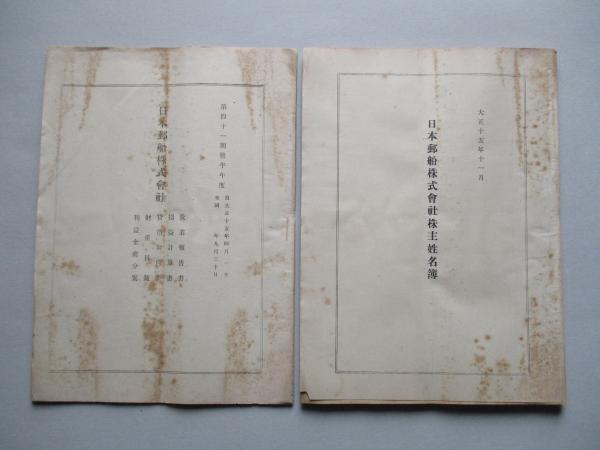 大正十五年十一月
日本郵船株式會社株主姓名簿
第四十一期後半年度
自大正十五年四月一日
至同年九月三十日
日本郵船株式會社
營業報告書
損益計算書
貸借對照表
財產目錄
利益金處分案